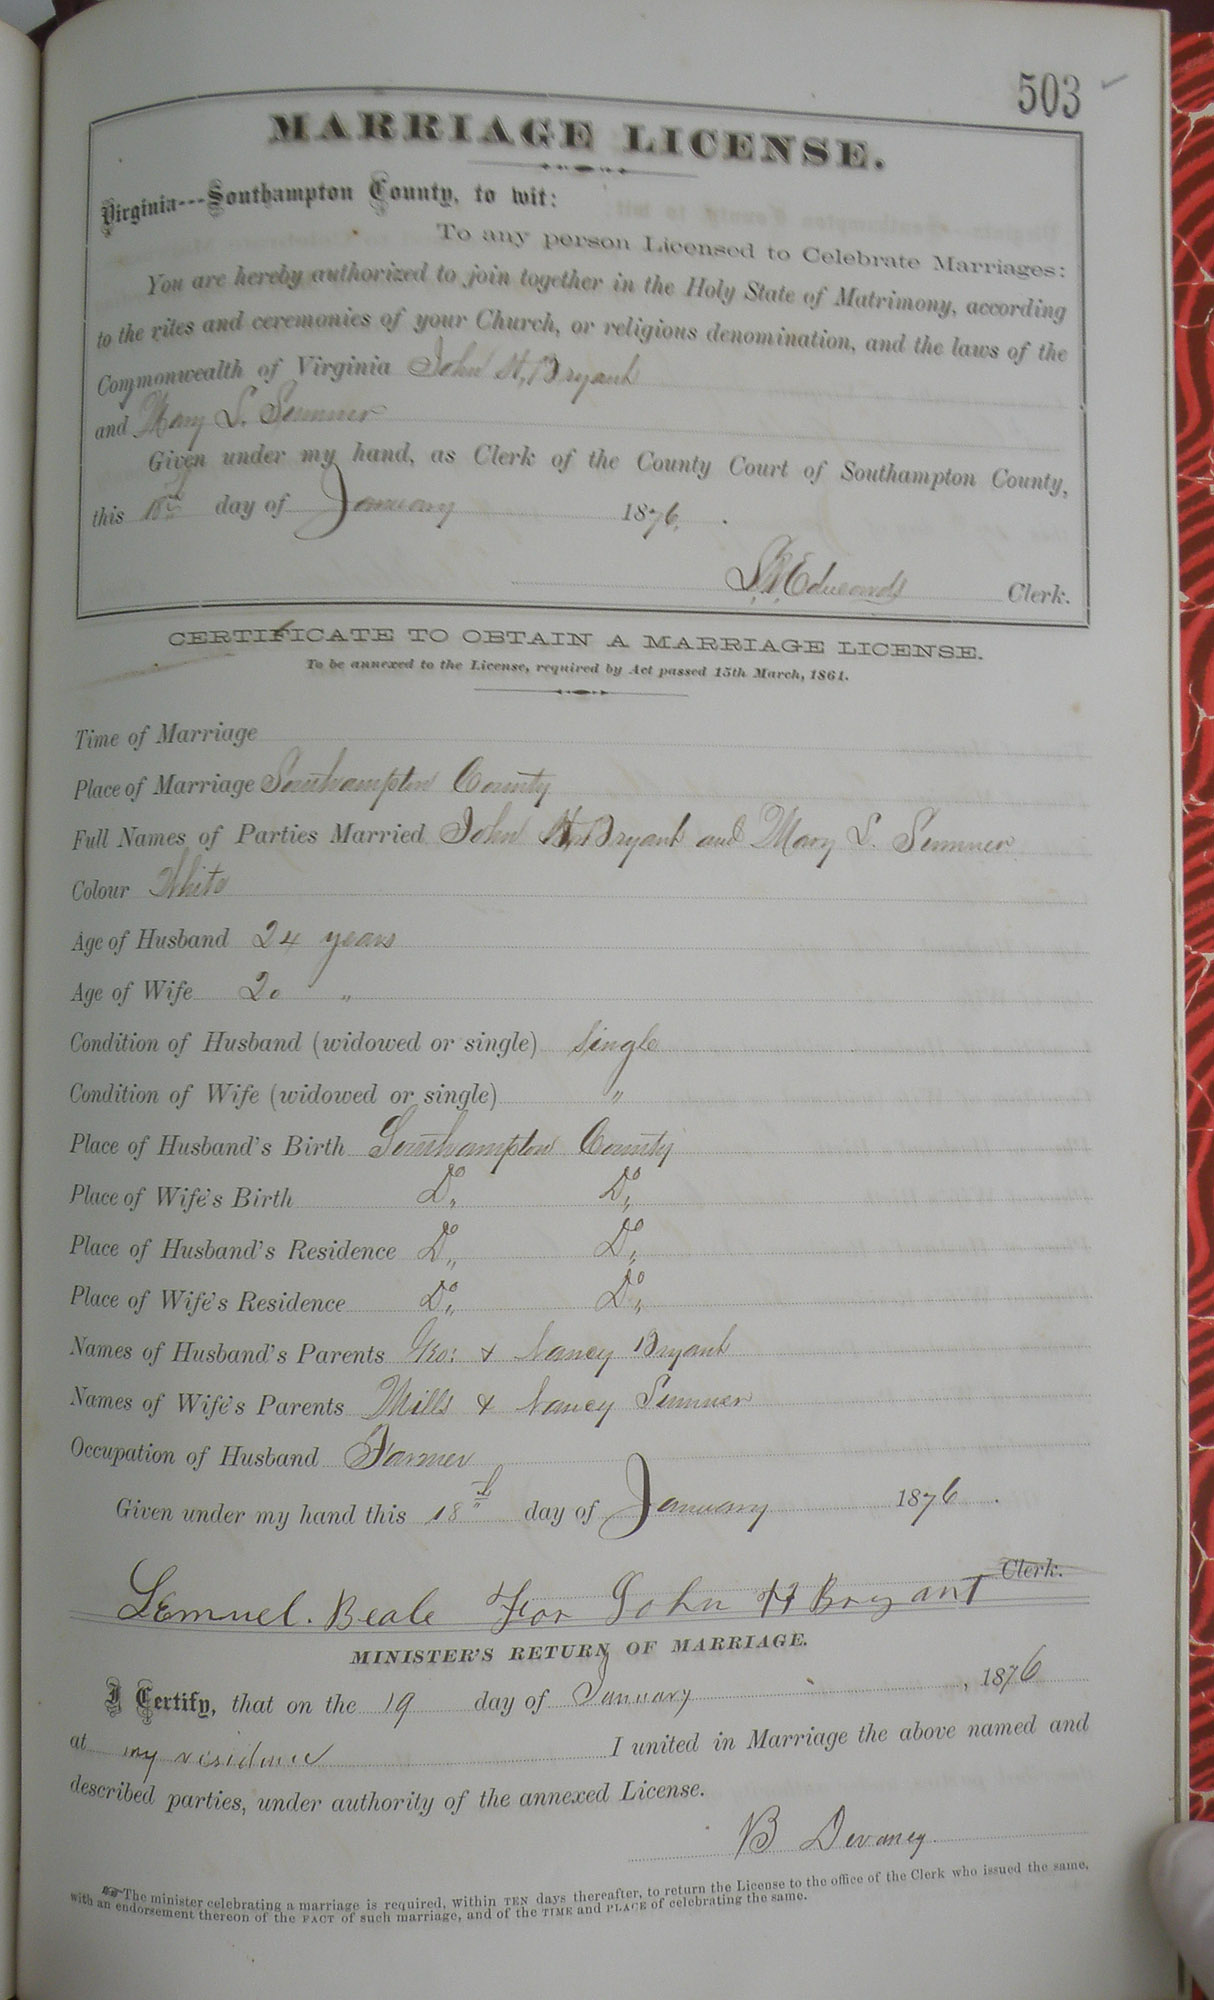 503
MARRIAGE LICENSE.
Virginia---Southampton County, to wit:
To any person Licensed to Celebrate Marriages:
You are hereby authorized to join together in the Holy State of Matrimony, according
to the rites and ceremonies of your Church, or religious denomination, and the laws of the
Commonwealth of Virginia John H. Bryant
and Mary L. Sumner
Given under my hand, as Clerk of the County Court of Southampton County,
this 18th day of January 1876.
L. R. Edwards Clerk.
CERTIFICATE TO OBTAIN A MARRIAGE LICENSE.
To be annexed to the License, required by Act passed 15th March, 1861.
Time of Marriage
Place of Marriage Southampton County
Full Names of Parties Married John H. Bryant and Mary L. Sumner
Colour White
Age of Husband 24 years
Age of Wife 20 "
Condition of Husband (widowed or single) Single
Condition of Wife (widowed or single) "
Place of Husband's Birth Southampton County
Place of Wife's Birth Do. Do.
Place of Husband's Residence Do. Do.
Place of Wife's Residence Do. Do.
Names of Husband's Parents Geo: & Nancy Bryant
Names of Wife's Parents Mills & Nancy Sumner
Occupation of Husband Farmer
Given under my hand this 18th day of January 1876.
Clerk.
Lemuel. Beale For John H Bryant
MINISTER'S RETURN OF MARRIAGE.
I Certify, that on the 19 day of January, 1876
at my residence I united in Marriage the above named and
described parties, under authority of the annexed License.
B Devaney
The minister celebrating a marriage is required, within TEN days thereafter, to return the License to the office of the Clerk who issued the same,
with an endorsement thereon of the FACT of such marriage, and of the TIME and PLACE of celebrating the same.